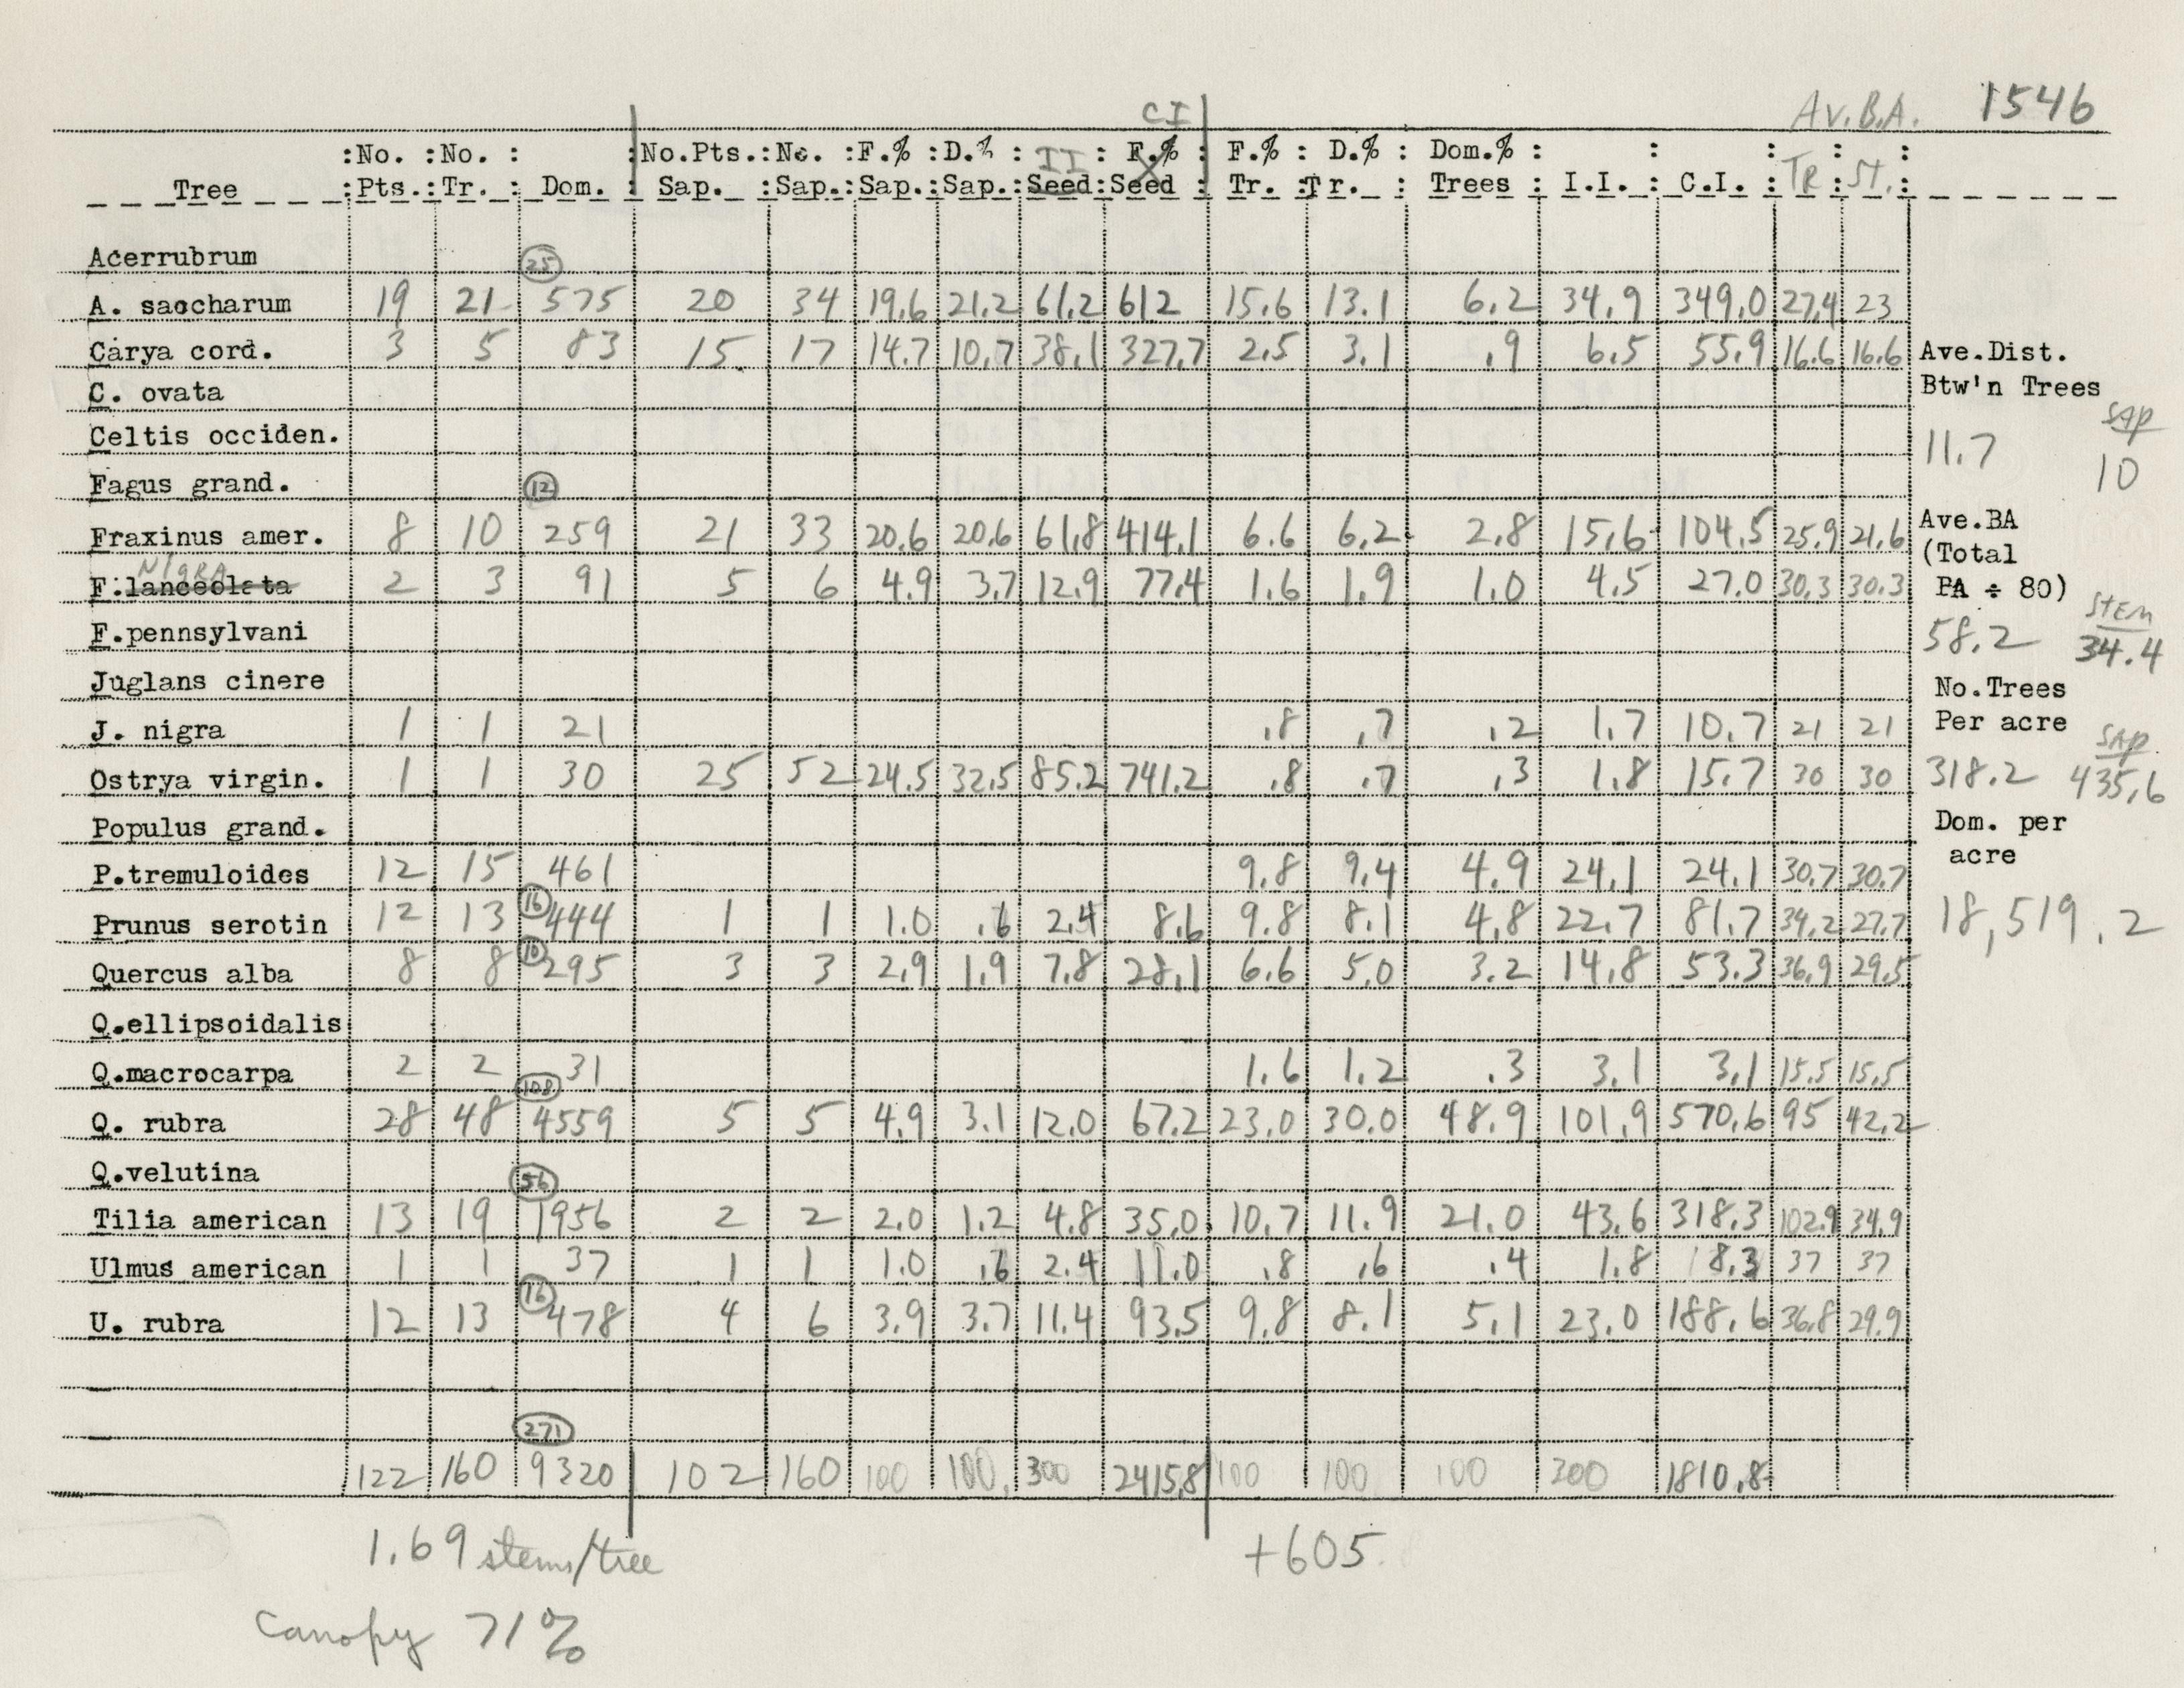 Av.B.A. 1546
CI
:No. :No. : :No.Pts.:No. :F.% :D.% : II : F.% : F.% : D.% : Dom.% : : : : :
Tree :Pts.:Tr. : Dom. : Sap. :Sap.:Sap.:Sap.:Seed:Seed : Tr. :Tr. : Trees : I.I. : C.I. : TR : St. :
Acerrubrum
25
A. saccharum 19 21 575 20 34 19.6 21.2 61.2 612 15.6 13.1 6.2 34.9 349.0 27.4 23
Carya cord. 3 5 83 15 17 14.7 10.7 38.1 327.7 2.5 3.1 .9 6.5 55.9 16.6 16.6
Ave.Dist.
C. ovata
Btw'n Trees
Celtis occiden.
SAP
11.7 10
Fagus grand.
12
Fraxinus amer. 8 10 259 21 33 20.6 20.6 61.8 414.1 6.6 6.2 2.8 15.6 104.5 25.9 21.6
Ave.BA
(Total
NIGRA
F.lanceolata 2 3 91 5 6 4.9 3.7 12.9 77.4 1.6 1.9 1.0 4.5 27.0 30.3 30.3
BA ÷ 80)
STEM
F.pennsylvani
58.2 34.4
Juglans cinere
No.Trees
J. nigra 1 1 21 .8 .7 .2 1.7 10.7 21 21
Per acre
SAP
Ostrya virgin. 1 1 30 25 52 24.5 32.5 85.2 741.2 .8 .7 .3 1.8 15.7 30 30
318.2 435.6
Populus grand.
Dom. per
acre
P.tremuloides 12 15 461 9.8 9.4 4.9 24.1 24.1 30.7 30.7
16
Prunus serotin 12 13 444 1 1 1.0 .6 2.4 8.6 9.8 8.1 4.8 22.7 81.7 34.2 27.7
18,519.2
10
Quercus alba 8 8 295 3 3 2.9 1.9 7.8 28.1 6.6 5.0 3.2 14.8 53.3 36.9 29.5
Q.ellipsoidalis
Q.macrocarpa 2 2 31 1.6 1.2 .3 3.1 3.1 15.5 15.5
108
Q. rubra 28 48 4559 5 5 4.9 3.1 12.0 67.2 23.0 30.0 48.9 101.9 570.6 95 42.2
Q.velutina
56
Tilia american 13 19 1956 2 2 2.0 1.2 4.8 35.0 10.7 11.9 21.0 43.6 318.3 102.9 34.9
Ulmus american 1 1 37 1 1 1.0 .6 2.4 11.0 .8 .6 .4 1.8 8.3 37 37
16
U. rubra 12 13 478 4 6 3.9 3.7 11.4 93.5 9.8 8.1 5.1 23.0 188.6 36.8 29.9
271
122 160 9320 102 160 100 100 300 2415.8 100 100 100 300 1810.8
1.69 stems/tree +605
Canopy 71%